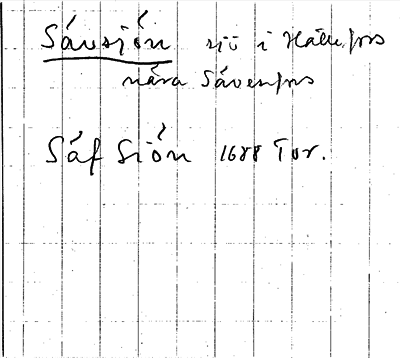 Sävsjön sjö i Hällefors
nära Sävenfors
Säf Siön 1688 Tor.